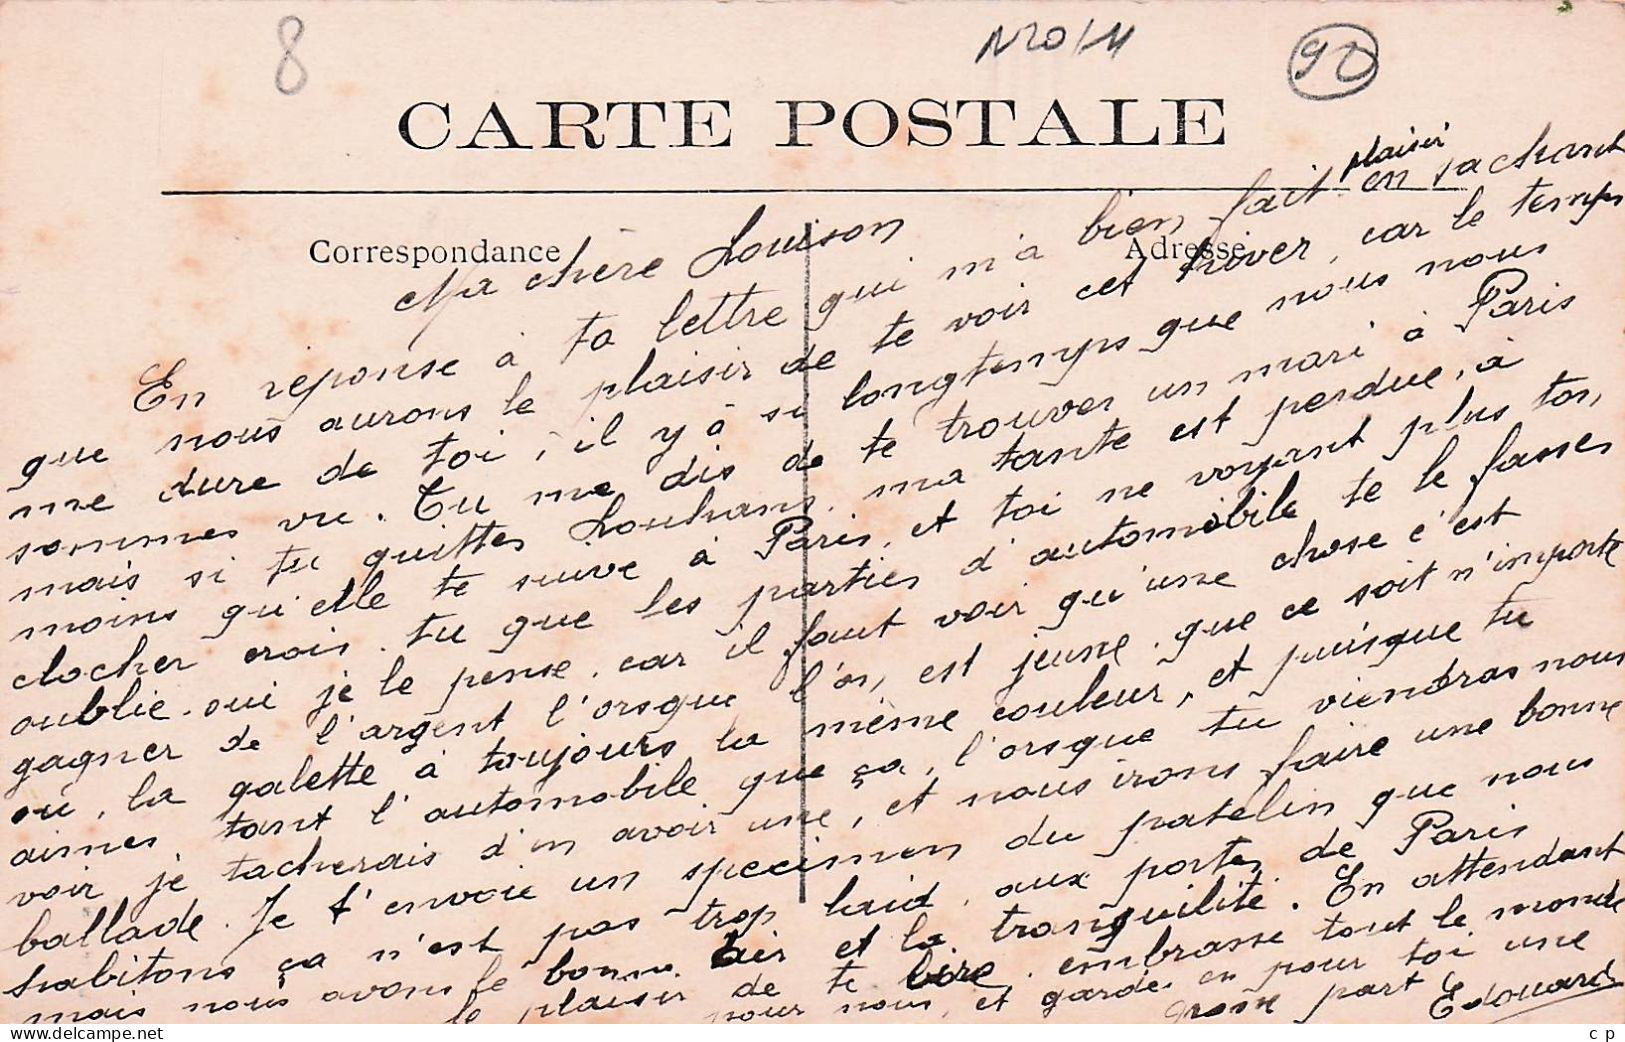 8
N20/11
90
CARTE POSTALE
Correspondance
Adresse
Ma chère Louison
En réponse à ta lettre qui m'a bien fait plaisir en sachant
que nous aurons le plaisir de te voir cet hiver, car le temps
me dure de toi, il y à si longtemps que nous nous
sommes vu. Tu me dis de te trouver un mari à Paris
mais si tu quittes Louhans, ma tante est perdue, à
moins qu'elle te suive à Paris, et toi ne voyant plus ton
clocher crois-tu que les parties d'automobile te le fasses
oublie. oui je le pense, car il faut voir qu'une chose c'est
gagner de l'argent l'orsque l'on est jeune, que ce soit n'importe
ou, la galette à toujours la même couleur, et puisque tu
aimes tant l'automobile que ça, l'orsque tu viendras nous
voir je tacherais d'en avoir une, et nous irons faire une bonne
ballade. Je t'envoie un specimen du patelin que nous
habitons ça n'est pas trop laid, aux portes de Paris
mais nous avons le bonne air et la tranquilité. En attendant
le plaisir de te lire, embrasse tout le monde
pour nous, et garde-en pour toi une
grosse part
Edouard
c p